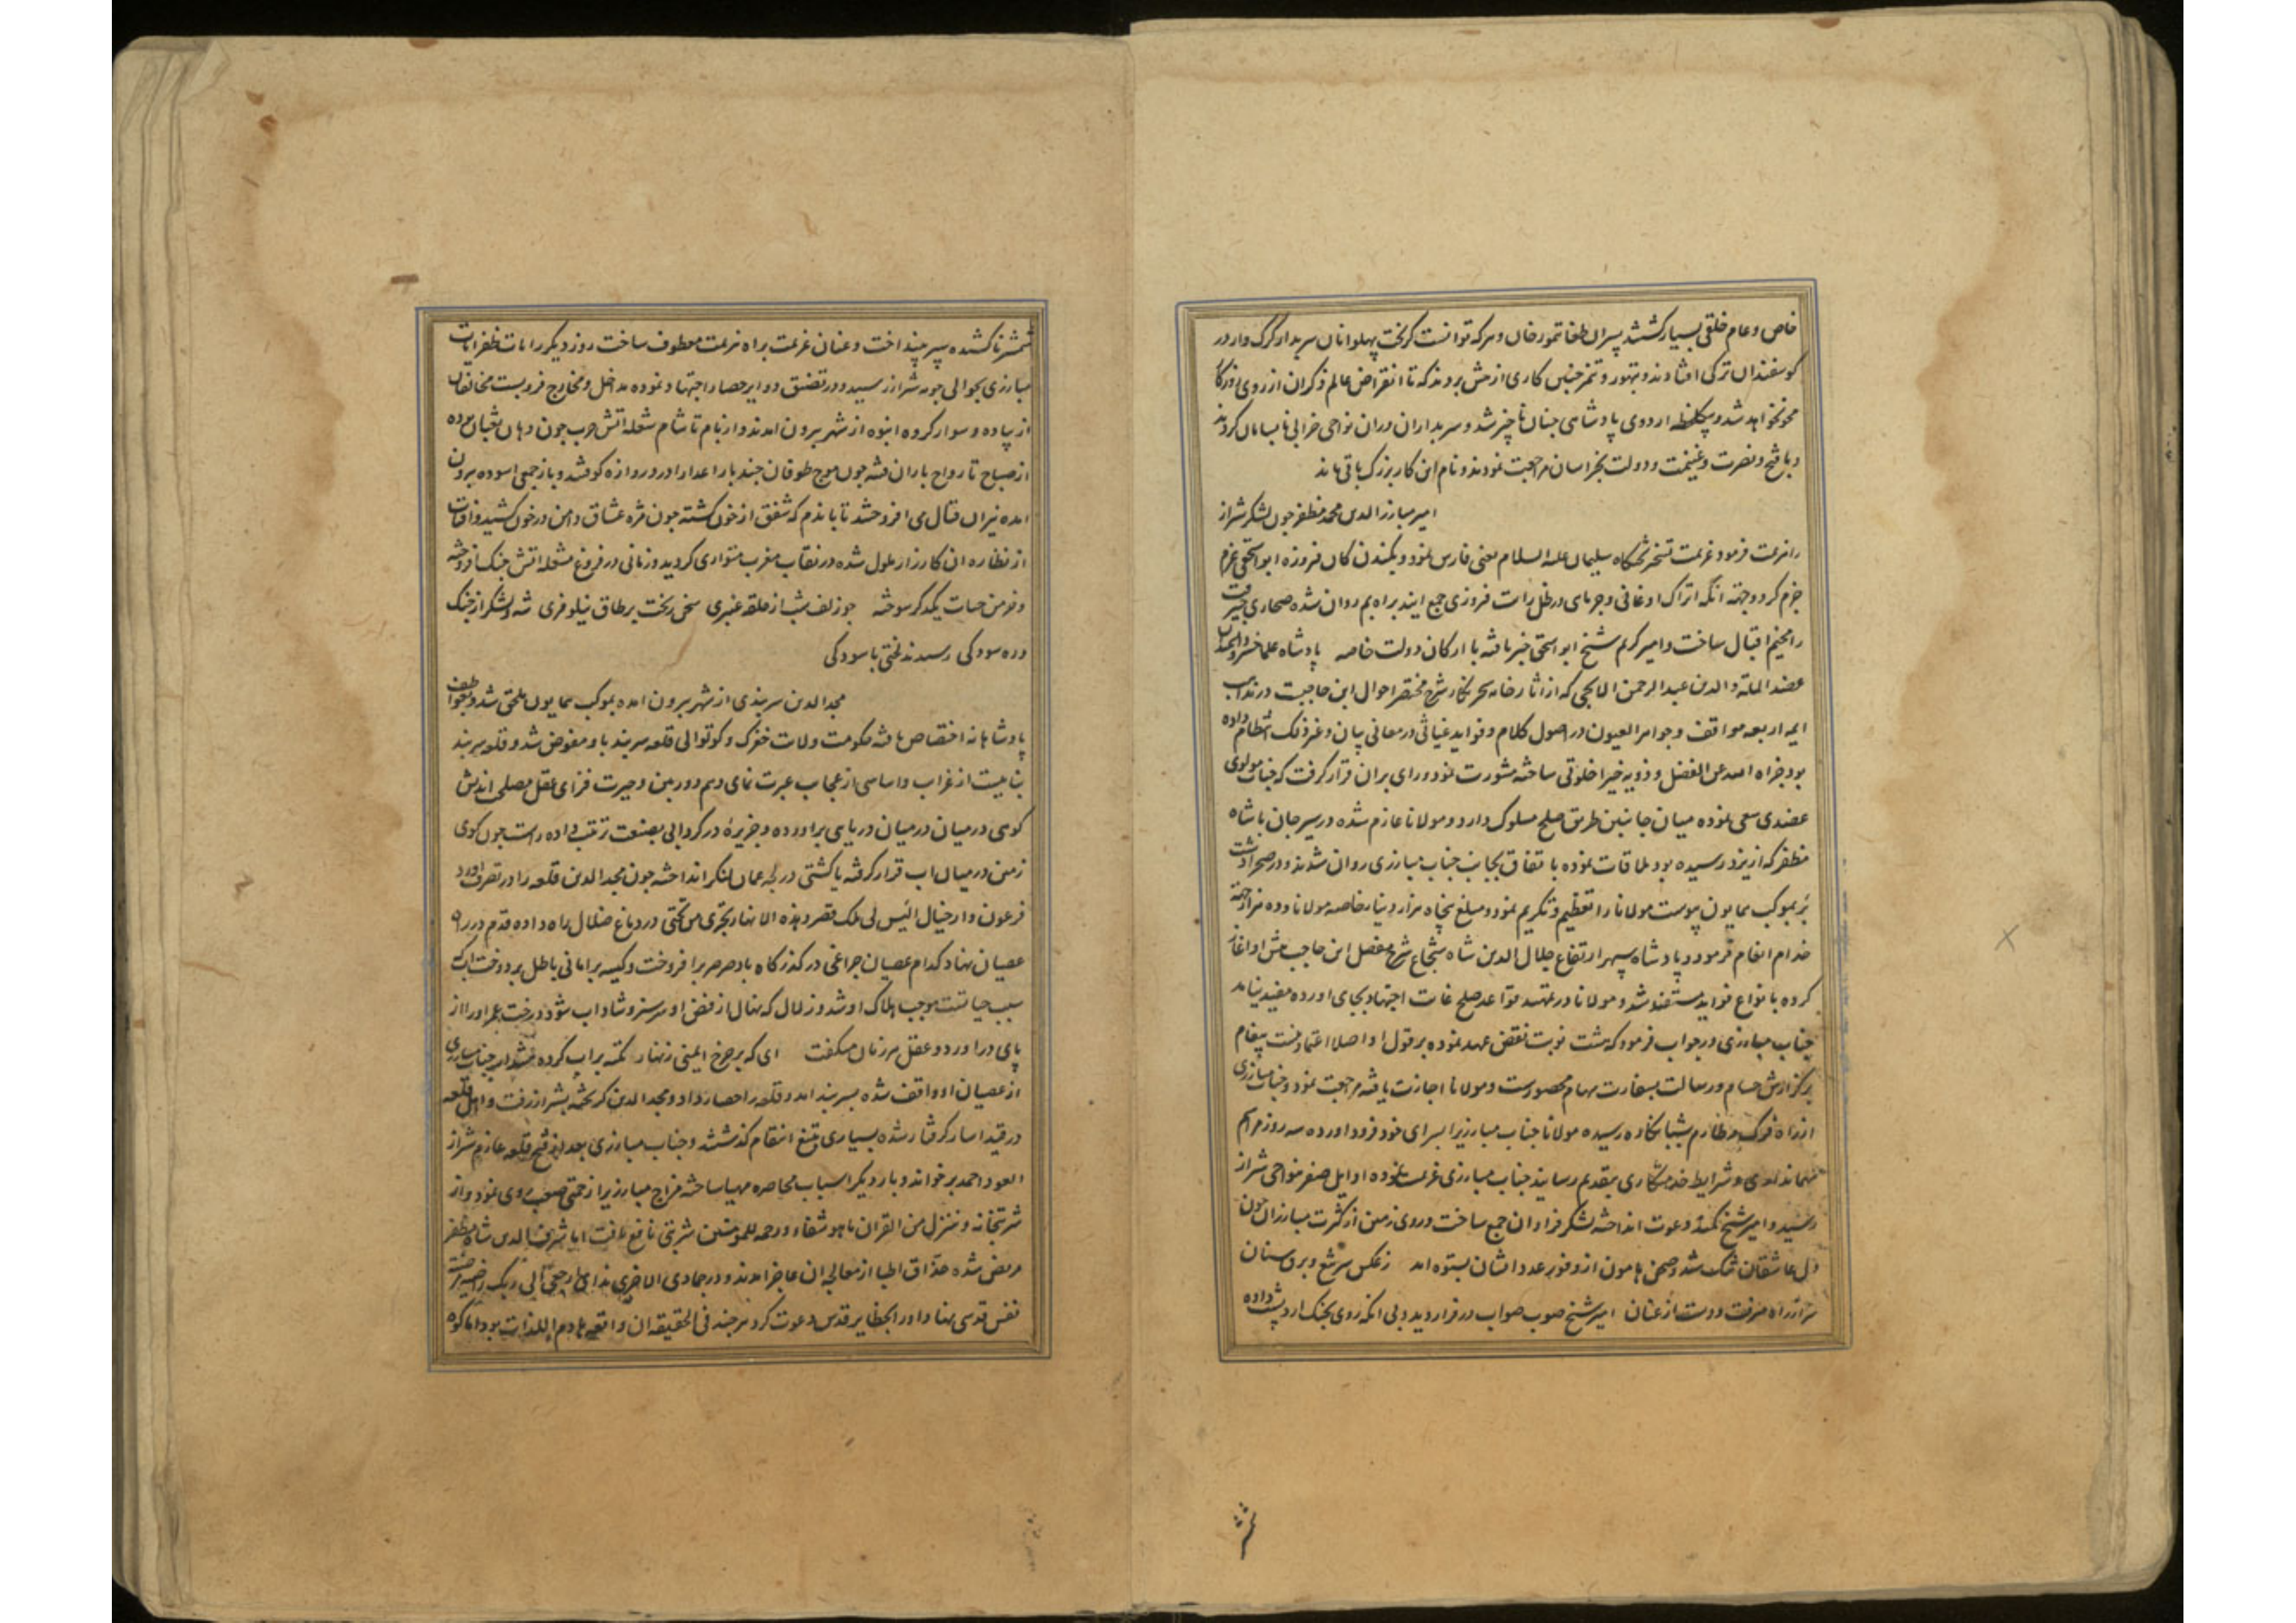 خاص و عام خلقی بسیار کشتند پسران طغاتمور خان و هر که توانست کریخت پهلوانان سربدار کرک وار در
کوسفندان ترکی افتادند و بتهور و تنمر چنین کاری از پیش بردند که تا انقراض عالم ذکر ان از روی روزکار
محو نخواهد شد و بیکلحظه اردوی پادشاهی چنان ناچیز شد و سربداران دران نواحی خرابی نابسامان کردند
و با فتح و نصرت و غنیمت و دولت بخراسان مراجعت نمودند و نام این کار بزرک باقی ماند
امیر مبارز الدین محمد مظفر چون لشکر شیراز
را هزیمت فرمود عزیمت تسخیر تختکاه سلیمان علیه السلام یعنی فارس نمود و بکندن کان فیروزه ابواسحقی عزم
جزم کرد و جهة انکه اتراک اوغانی و جرمای در ظل رایت فیروزی جمع ایند براه بم روان شده صحاری جیرفت
را مخیم اقبال ساخت و امیر کریم شیخ ابو اسحق خبر یافته با ارکان دولت خاصه پادشاه علما
عضد الملة و الدین عبد الرحمن الایجی که از اثار خامه سحر نکار شرح مختصر احوال ابن حاجبست در مذاهب
ایمه اربعه مواقف و جواهر العیون در اصول کلام و فواید غیاثی در معانی بیان و غیر ذلک انتظام داده
بود جزاه الله عن الفضل و ذویه خیرا خلوتی ساخته مشورت نمود و رای بران قرار کرفت که جناب مولوی
عضدی سعی نموده میان جانبین طریق صلح مسلوک دارد و مولانا عازم شده در سیرجان با شاه
مظفر که از یزد رسیده بود ملاقات نموده باتفاق بجانب جناب مبارزی روان شدند و در صحرا دشت
بر بموکب همایون پیوست مولانا را تعظیم و تکریم نمود و مبلغ پنجاه هزار دینار خاصه مولانا و ده هزار جهة
خدام انعام فرمود و پادشاه سپهر ارتفاع جلال الدین شاه شجاع شرح مفصل ابن حاجب پیش او اغاز
کرده بانواع فواید مستفید شد و مولانا در تمهید قواعد صلح غایت اجتهاد بجای اورده مفید نیامد
جناب مبارزی در جواب فرمود که هشت نوبت نقض عهد نموده بر قول او اصلا اعتماد نیست پیغام
بر کزارش حسام و رسالت بسفارت سهام محصورست و مولانا اجازت یافته مراجعت نمود و جناب مبارزی
از راه فرک و طارم بشبانکاره رسیده مولانا جناب مبارزیرا بسرای خود فرود اورده سه روز مراسم
مهمانداری و شرایط خدمتکاری بتقدیم رسانید جناب مبارزی عزیمت نموده اوایل صفر بنواحی شیراز
رسید و امیر شیخ دعوت انداخته لشکر فراوان جمع ساخت و روی زمین از کثرت مبارزان چون
دل عاشقان تنک شد و صحن هامون از وفور عدد ایشان بستوه امد ز عکس سر تیغ و برق سنان
سر از راه میرفت و دست از عنان امیر شیخ صوب صواب در فرار دید و بی انکه روی بجنک ارد پشت داده
شمشیر
شمشیر ناکشیده سپر بینداخت و عنان عزیمت براه هزیمت معطوف ساخت روز دیکر رایات ظفر ایات
مبارزی بحوالی حومه شیراز رسید و در تضییق دوایر حصار اجتهاد نموده مداخل و مخارج فروبست مخالفان
از پیاده و سوار کروه انبوه از شهر بیرون امدند و از بام تا شام شعله اتش حرب چون دهان ثعبان بوده
از صباح تا رواح باران فتنه چون موج طوفان چند بار اعدا را در دروازه کوفتند و باز جمعی اسوده بیرون
امده نیران قتال می افروختند تا باندم که شفق از خون کشته چون مژه عشاق دامن در خون کشید و افتاب
از نظاره ان کارزار ملول شده در نقاب مغرب متواری کردید و زمانی در فروغ مشعله اتش جنک افروخته
و خرمن حیات یکدکر سوخته چو زلف شب از حلقه عنبری سخن ریخت بر طاق نیلوفری شه و لشکر از جنک
و ره سودکی رسیدند لختی باسودکی
مجد الدین سربندی از شهر بیرون امده بموکب همایون ملحق شد و بعواطف
پادشاهانه اختصاص یافته حکومت ولایت خفرک و کوتوالی قلعه سربند باو مفوض شد و قلعه سربند
بناییست از غرایب و اساسی از عجایب عبرت نمای وهم دوربین و حیرت فزای عقل مصلحت اندیش
کوهی در میان در میان دریایی براورده و جزیره در کردابی بصنعت ترتیب داده راست چون کوی
زمین در میان اب قرار کرفته یا کشتی در لجه عمان لنکر انداخته چون مجد الدین قلعه را در تصرف اورد
فرعون وار خیال الیس لی ملک مصر و هذه الانهار تجری من تحتی در دماغ ضلال راه داده قدم در راه
عصیان نهاد کدام عصیان چراغی در کذرکاه باد صرصر برافروخت و کیسه بر امانی باطل بر دوخت اب که
سبب حیاتست موجب هلاک او شد و زلال که نهال از فیض او سرسبز و شاداب شود درخت عمر او را از
پای دراورد و عقل هر زمان میکفت ای که بر چرخ ایمنی زنهار تکیه بر اب کرده هشدار جناب مبارزی
از عصیان او واقف شده بسربند امد و قلعه را حصار داد و مجد الدین کریخته بشیراز رفت و اهل قلعه
در قید اسار کرفتار شده بسیاری بتیغ انتقام کذشتند و جناب مبارزی بعد از فتح قلعه عازم شیراز
العود احمد برخواند و بار دیکر اسباب محاصره مهیا ساخته مزاج مبارزیرا زحمتی صعب روی نمود و از
شربتخانه و ننزل من القران ما هو شفاء و رحمه للمومنین شربتی نافع یافت اما شرف الدین شاه مظفر
مریض شده حذاق اطبا از معالجه ان عاجز امدند و در جمادی الاخری ندای ارجعی الی ربک راضیة مرضیة
نفس قدسی نهاد او را بحظایر قدس دعوت کرد هر چند فی الحقیقه ان واقعه هادم اللذات بود اما کوه